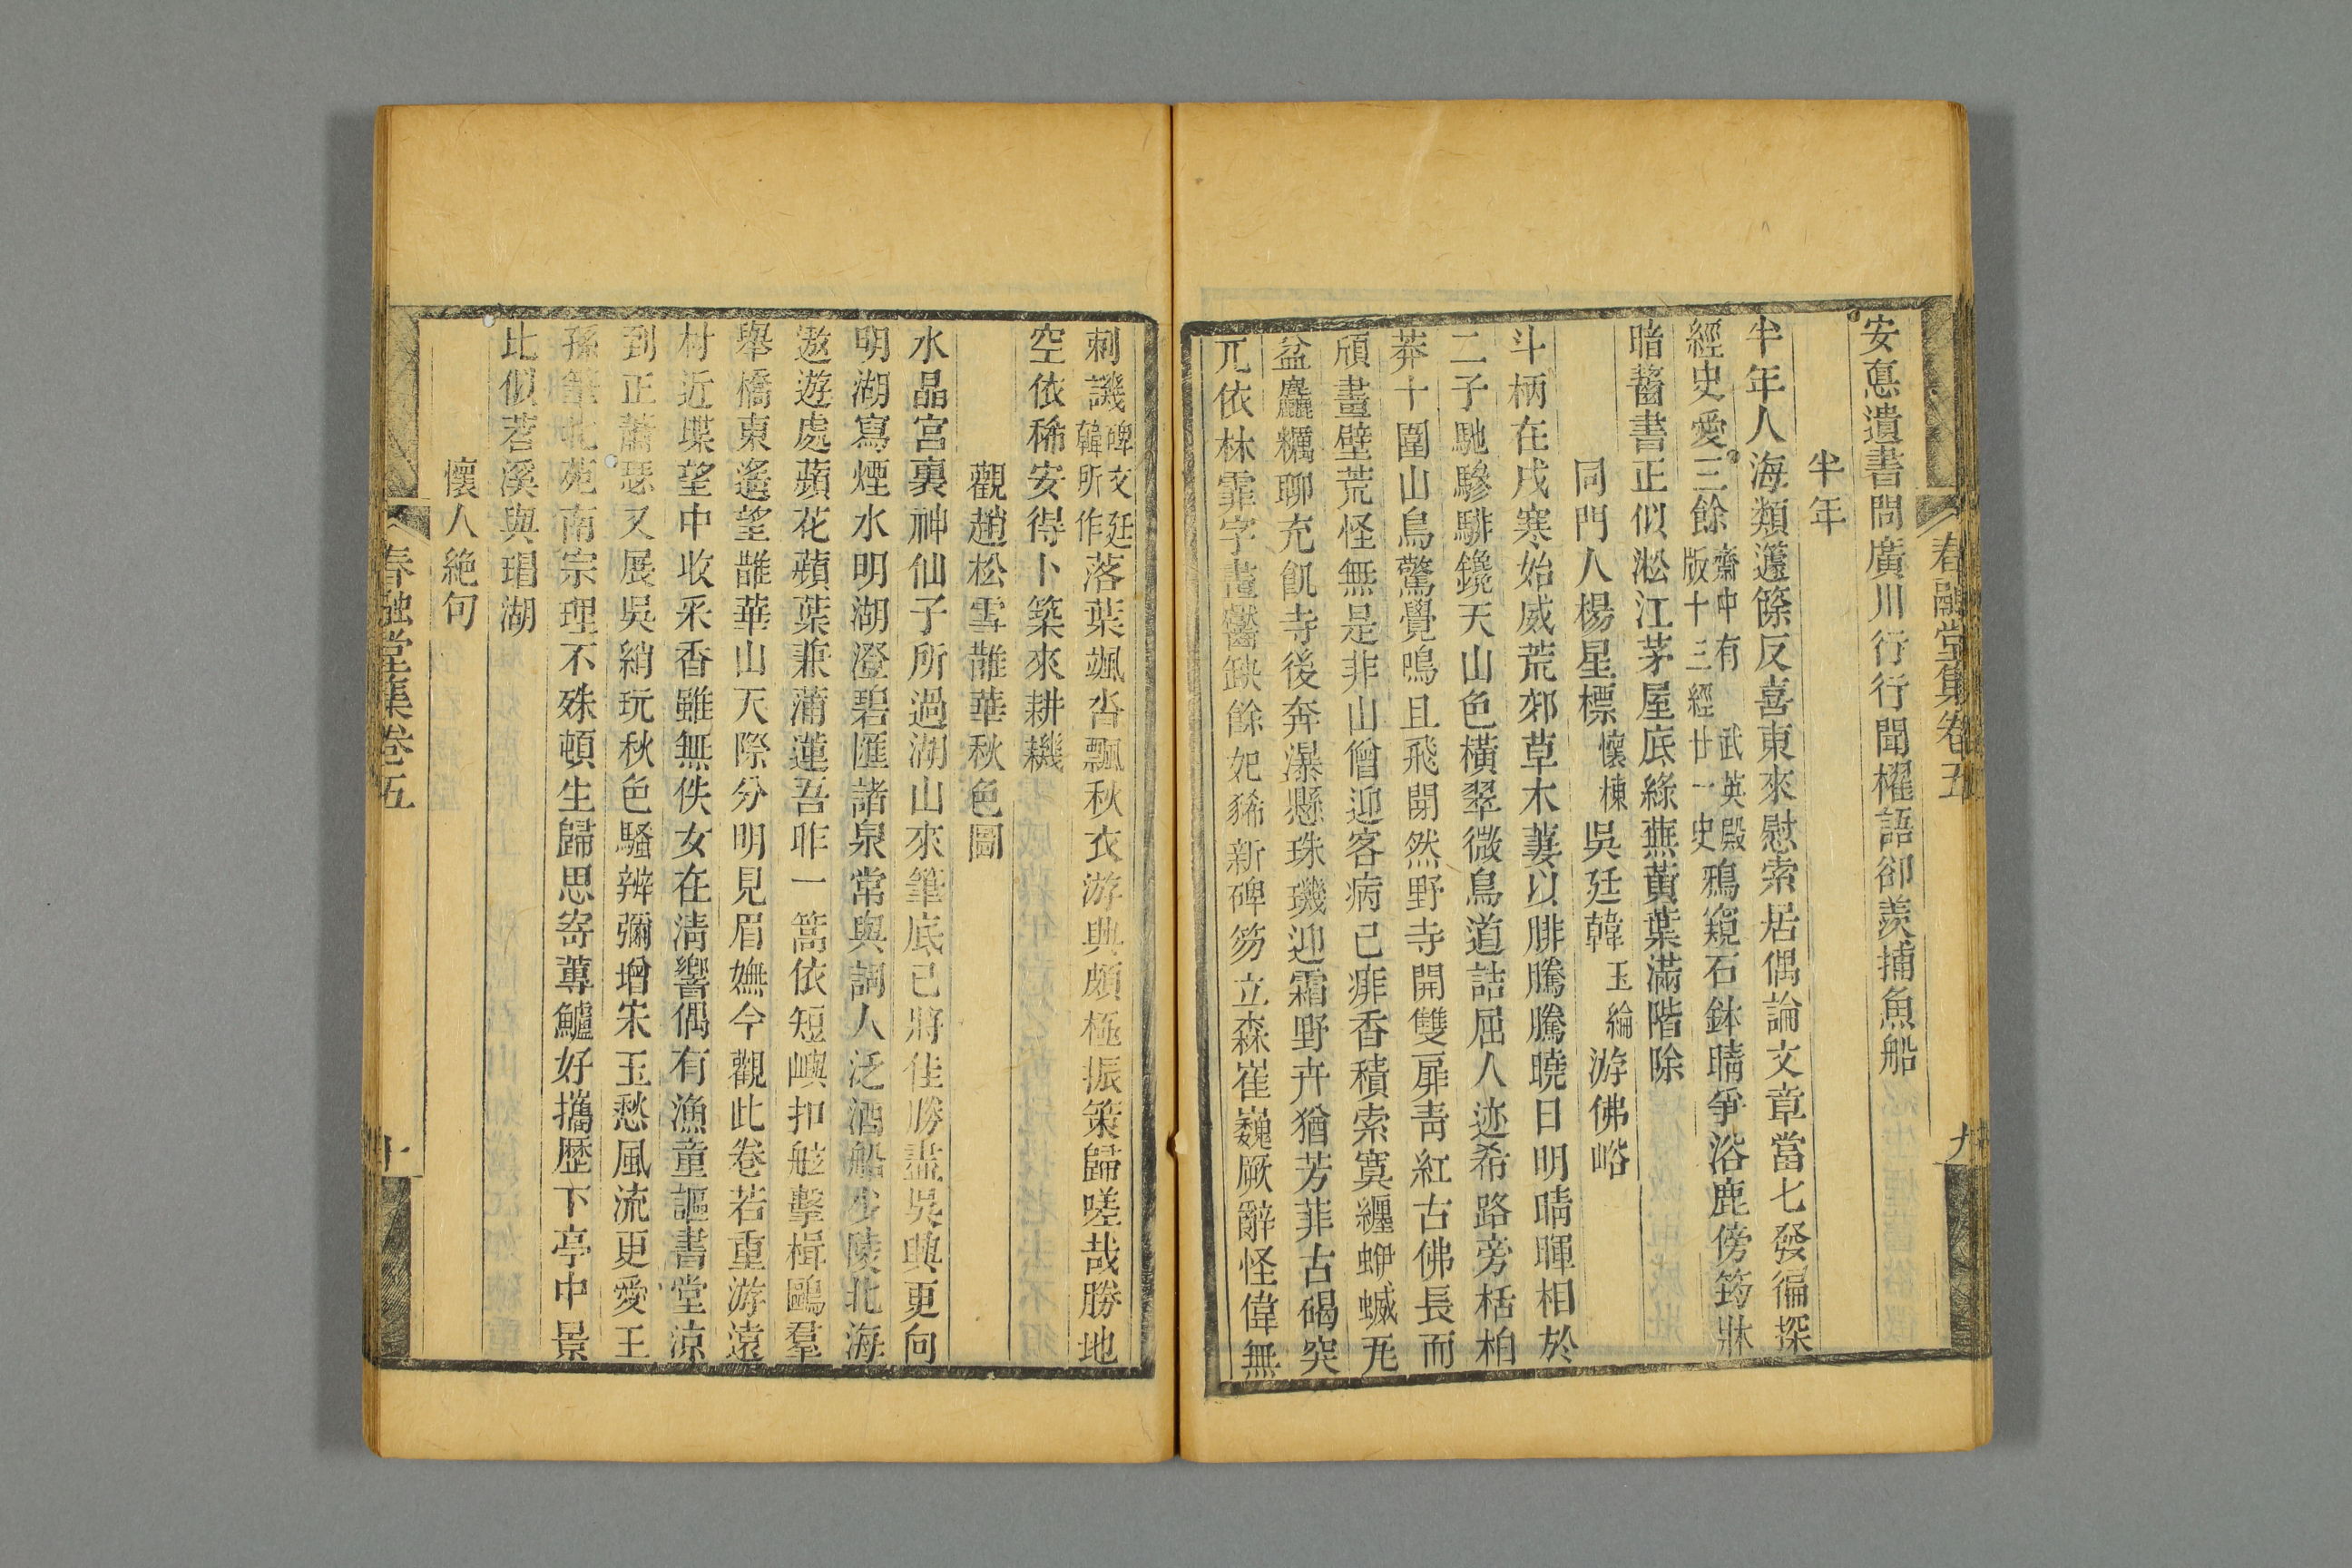 春融堂集卷五
九
安惪遺書問廣川行行聞櫂語卻羨捕魚船
半年
半年人海類籧篨反喜東來慰索居偶論文章當七發徧探
經史愛三餘齋中有武英殿版十三經廿一史鴉窺石鉢晴爭浴鹿傍筠牀
暗齧書正似淞江茅屋底綠蕪黃葉滿階除
同門人楊星標懷棟吳廷韓玉綸游佛峪
斗柄在戌寒始威荒郊草木萋以腓騰騰曉日明晴暉相於
二子馳驂騑鑱天山色橫翠微鳥道詰屈人迹希路旁栝柏
莽十圍山鳥驚覺鳴且飛閉然野寺開雙扉青紅古佛長而
頎畫壁荒怪無是非山僧迎客病已痱香積索寞纏蛜蝛瓦
盆麤糲聊充飢寺後奔瀑懸珠璣迎霜野卉猶芳菲古碣突
兀依林霏字畫齾缺餘妃豨新碑笏立森崔巍厥辭怪偉無
刺譏碑文廷韓所作落葉颯沓飄秋衣游興頗極振策歸嗟哉勝地
空依稀安得卜築來耕耭
觀趙松雪鵲華秋色圖
水晶宮裏神仙子所過湖山來筆底已將佳勝盡吳興更向
明湖寫煙水明湖澄碧匯諸泉常與詞人泛酒船少陵北海
遨遊處蘋花蘋葉兼蒲蓮吾昨一篙依短嶼扣舷擊楫鷗羣
舉橋東遙望鵲華山天際分明見眉嫵今觀此卷若重游遠
村近堞望中收采香雖無佚女在清響偶有漁童謳書堂涼
到正蕭瑟又展吳綃玩秋色騷辨彌增宋玉愁風流更愛王
孫筆北苑南宗理不殊頓生歸思寄蓴鱸好攜歷下亭中景
比似苕溪與瑁湖
懷人絶句
春融堂集卷五
十